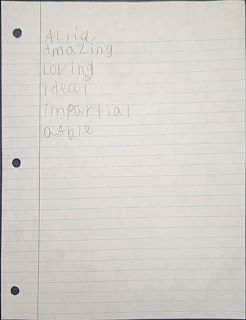 ALiia
AmaZing
Loving
ideal
impartial
aAble